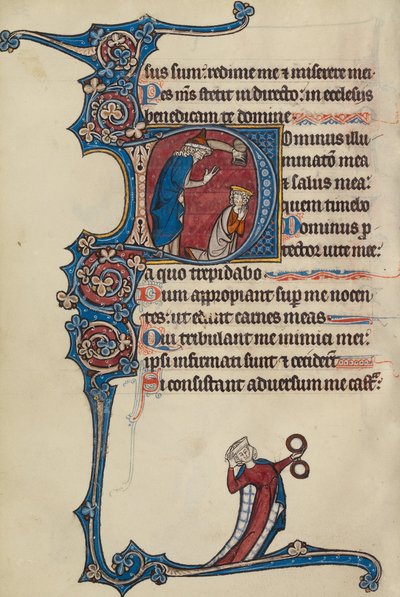 sus sum: redime me & miserere mei
Pes m̅s stetit in directo: in ecclesiis
benedicam te domine
Dominus illu
minatio mea
& salus mea:
quem timebo
Dominus p
tector uite mee:
a quo trepidabo
Dum appropiant sup̅ me nocen
tes: ut edant carnes meas
Qui tribulant me inimici mei:
ipsi infirmati sunt & cecider̅
Si consistant aduersum me castr̅: